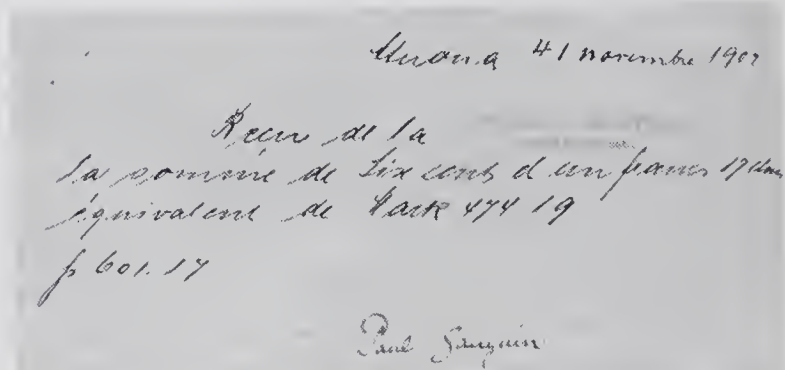 Atuona 41 novembre 1902
Recu de la
la somme de Six cents et un francs 17
équivalent de Mark 474 19
f 601.17
Paul Gauguin